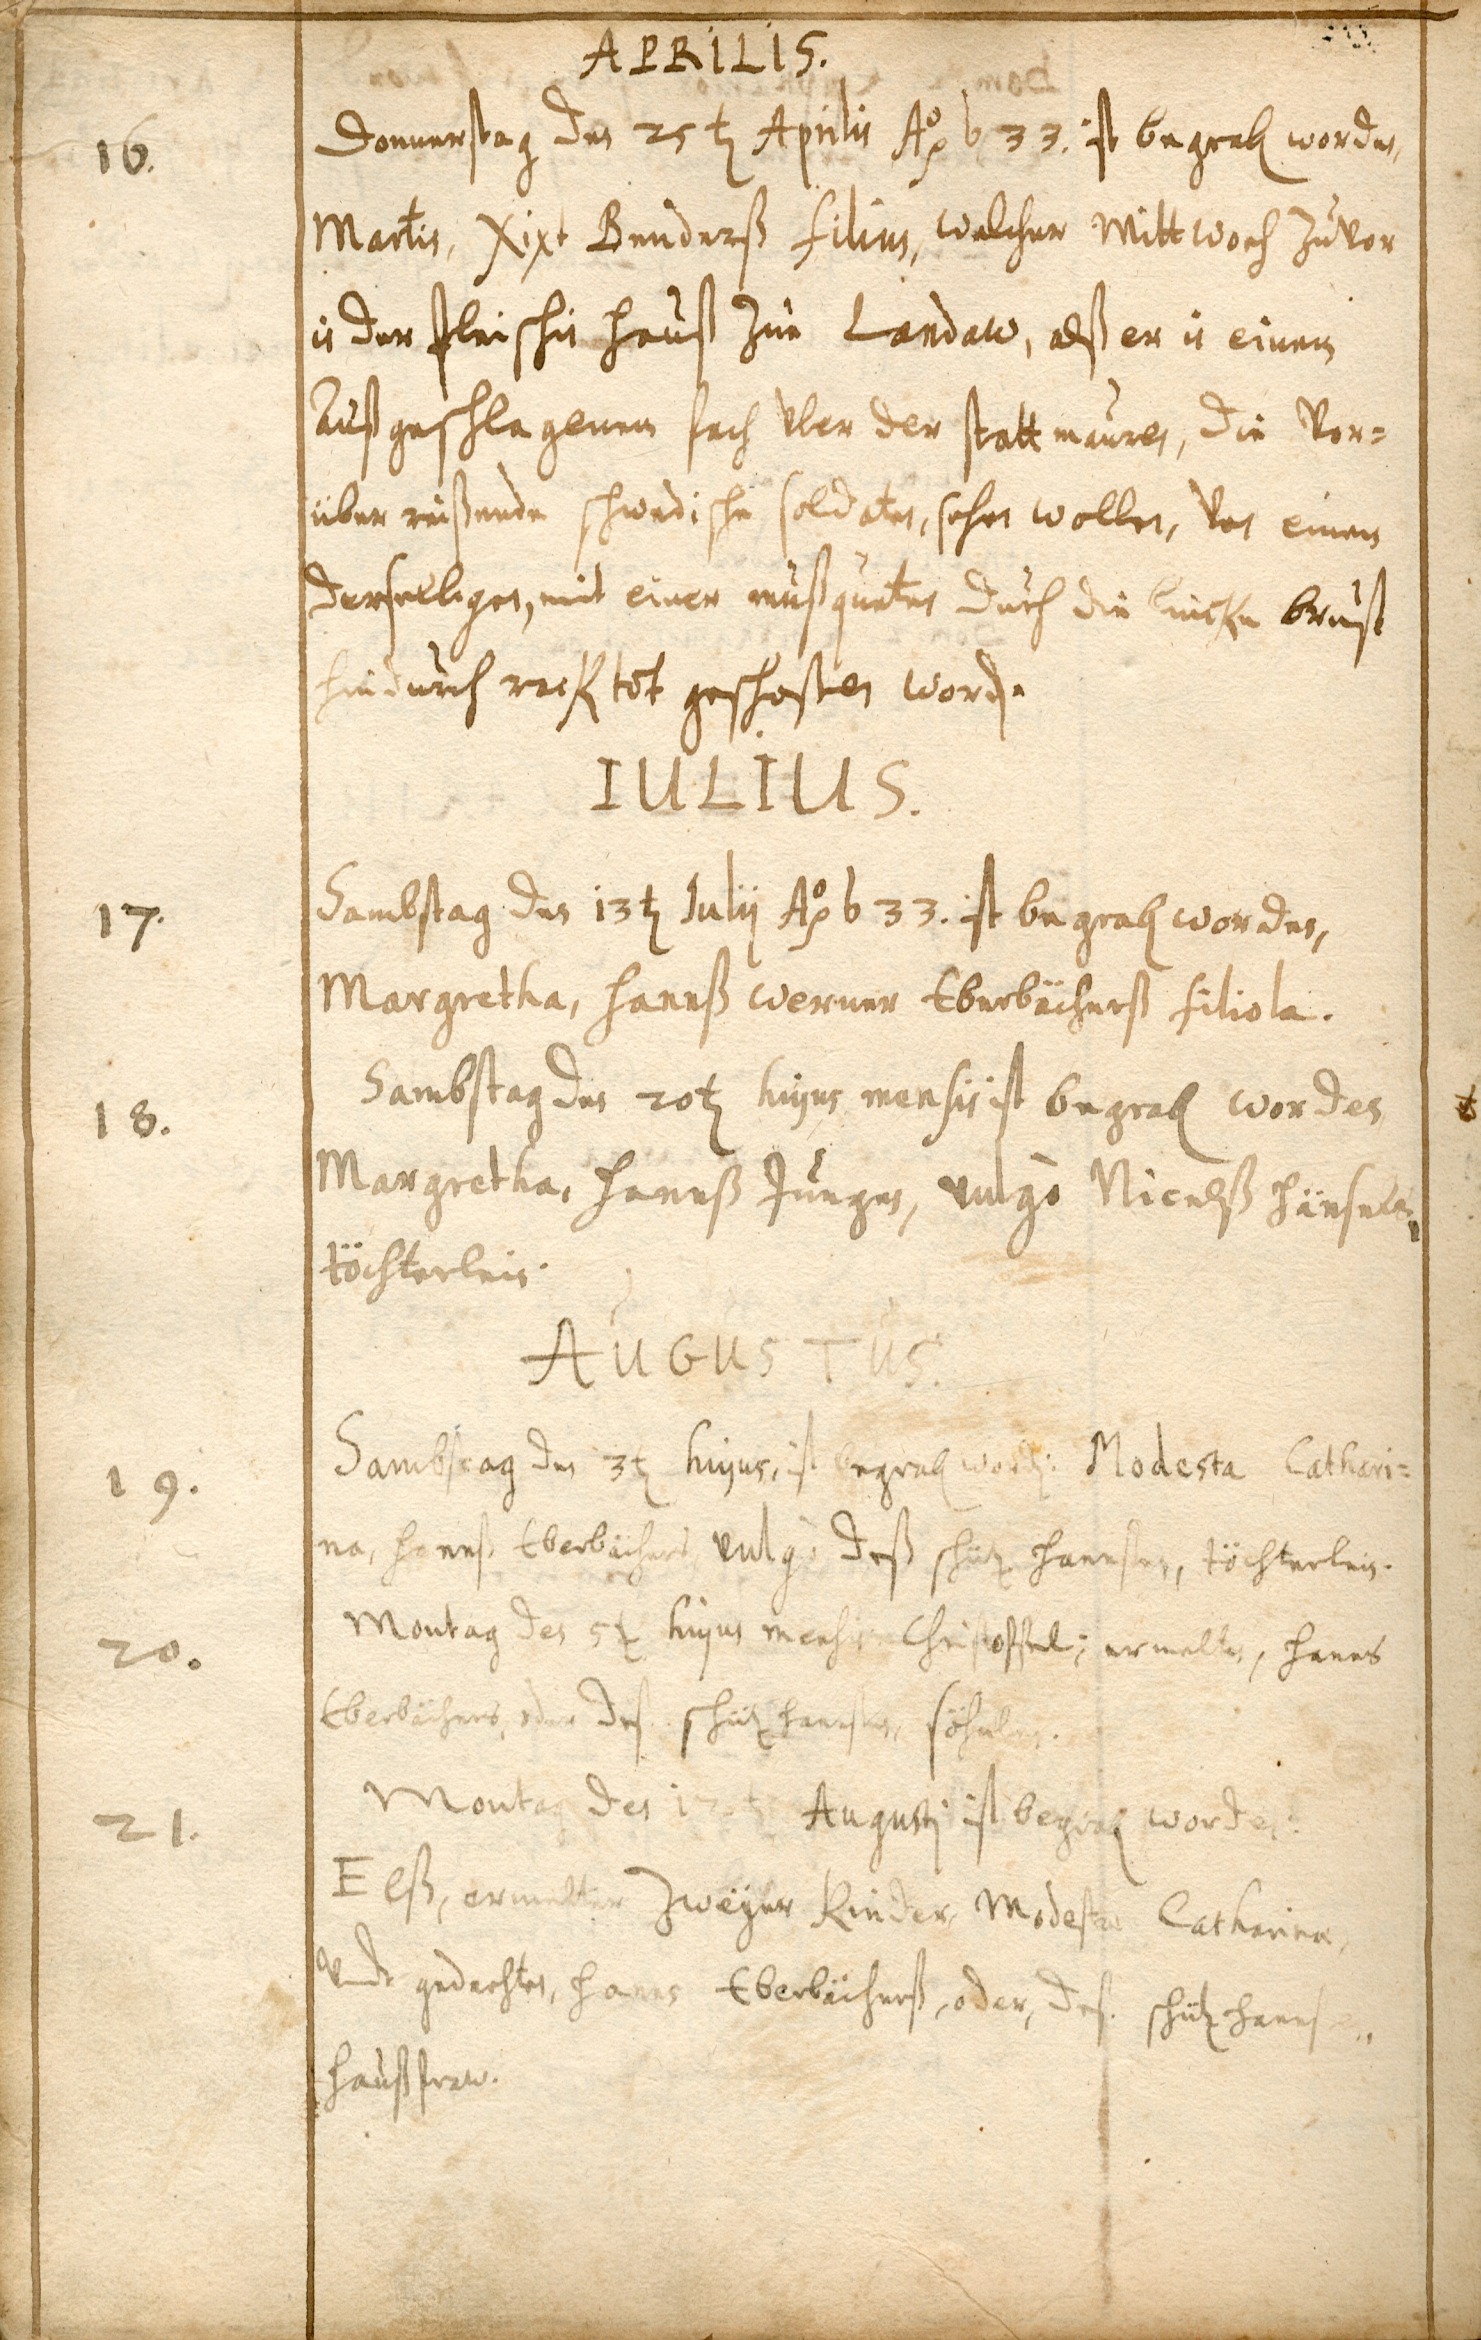 APRILIS.
16.
Donnerstag den 25 t Aprilis Ao 633. ist begrab worden,
Martin, Xixt Benderß filius, welcher Mittwoch zuvor
in der fleischin hauß zue Landaw, alß er in einem
Außgeschlagenem fach vber der stattmauren, die vor=
über reißende schwedische soldaten, sehen wollen, von einem
derselbigen, mit einer mußqueten durch die lincke brust
hindurch rack tot geschoßen word.
IULIUS.
17.
Sambstag den 13 t Iulij Ao 633. ist begrab worden,
Margretha, hanß werner Eberbächerß filiola.
18.
Sambstag den 20 t hujus mensis ist begrab worden
Margretha, hanß Jungen, vulgò Nicelß hänseles,
töchterlein.
AUGUSTUS.
19.
Sambstag den 3 t hujus, ist begrab word: Modesta Cathari=
na, hanß Eberbächers, vulgò deß schütz hansen, töchterlein.
20.
Montag den 5 t hujus mensis Christoffel; ermeltes, hanns
Eberbächers, oder deß schütz hansen, söhnlen.
21.
Montag den Augusti ist begrab worden:
Elß, ermelter zweyer Kinder, Modestae Catharinae,
Undt gedachtes, hanns Eberbächerß, oder, deß schütz hansen,
haußfraw.